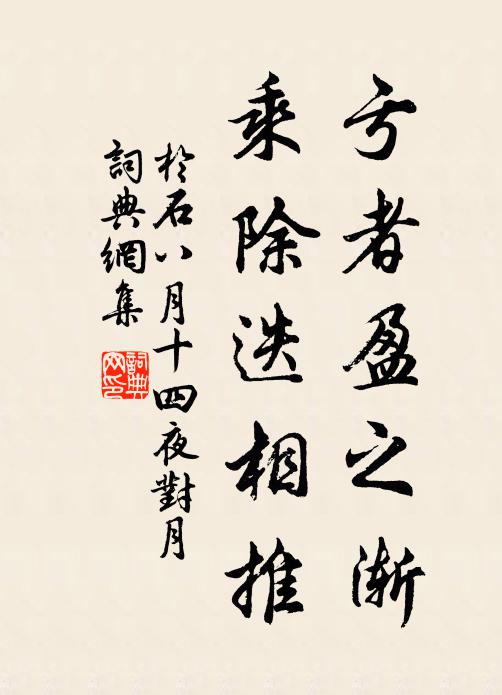 亏者盈之渐
乘除迭相推
於石八月十四夜對月
詞典網集
詞典网印